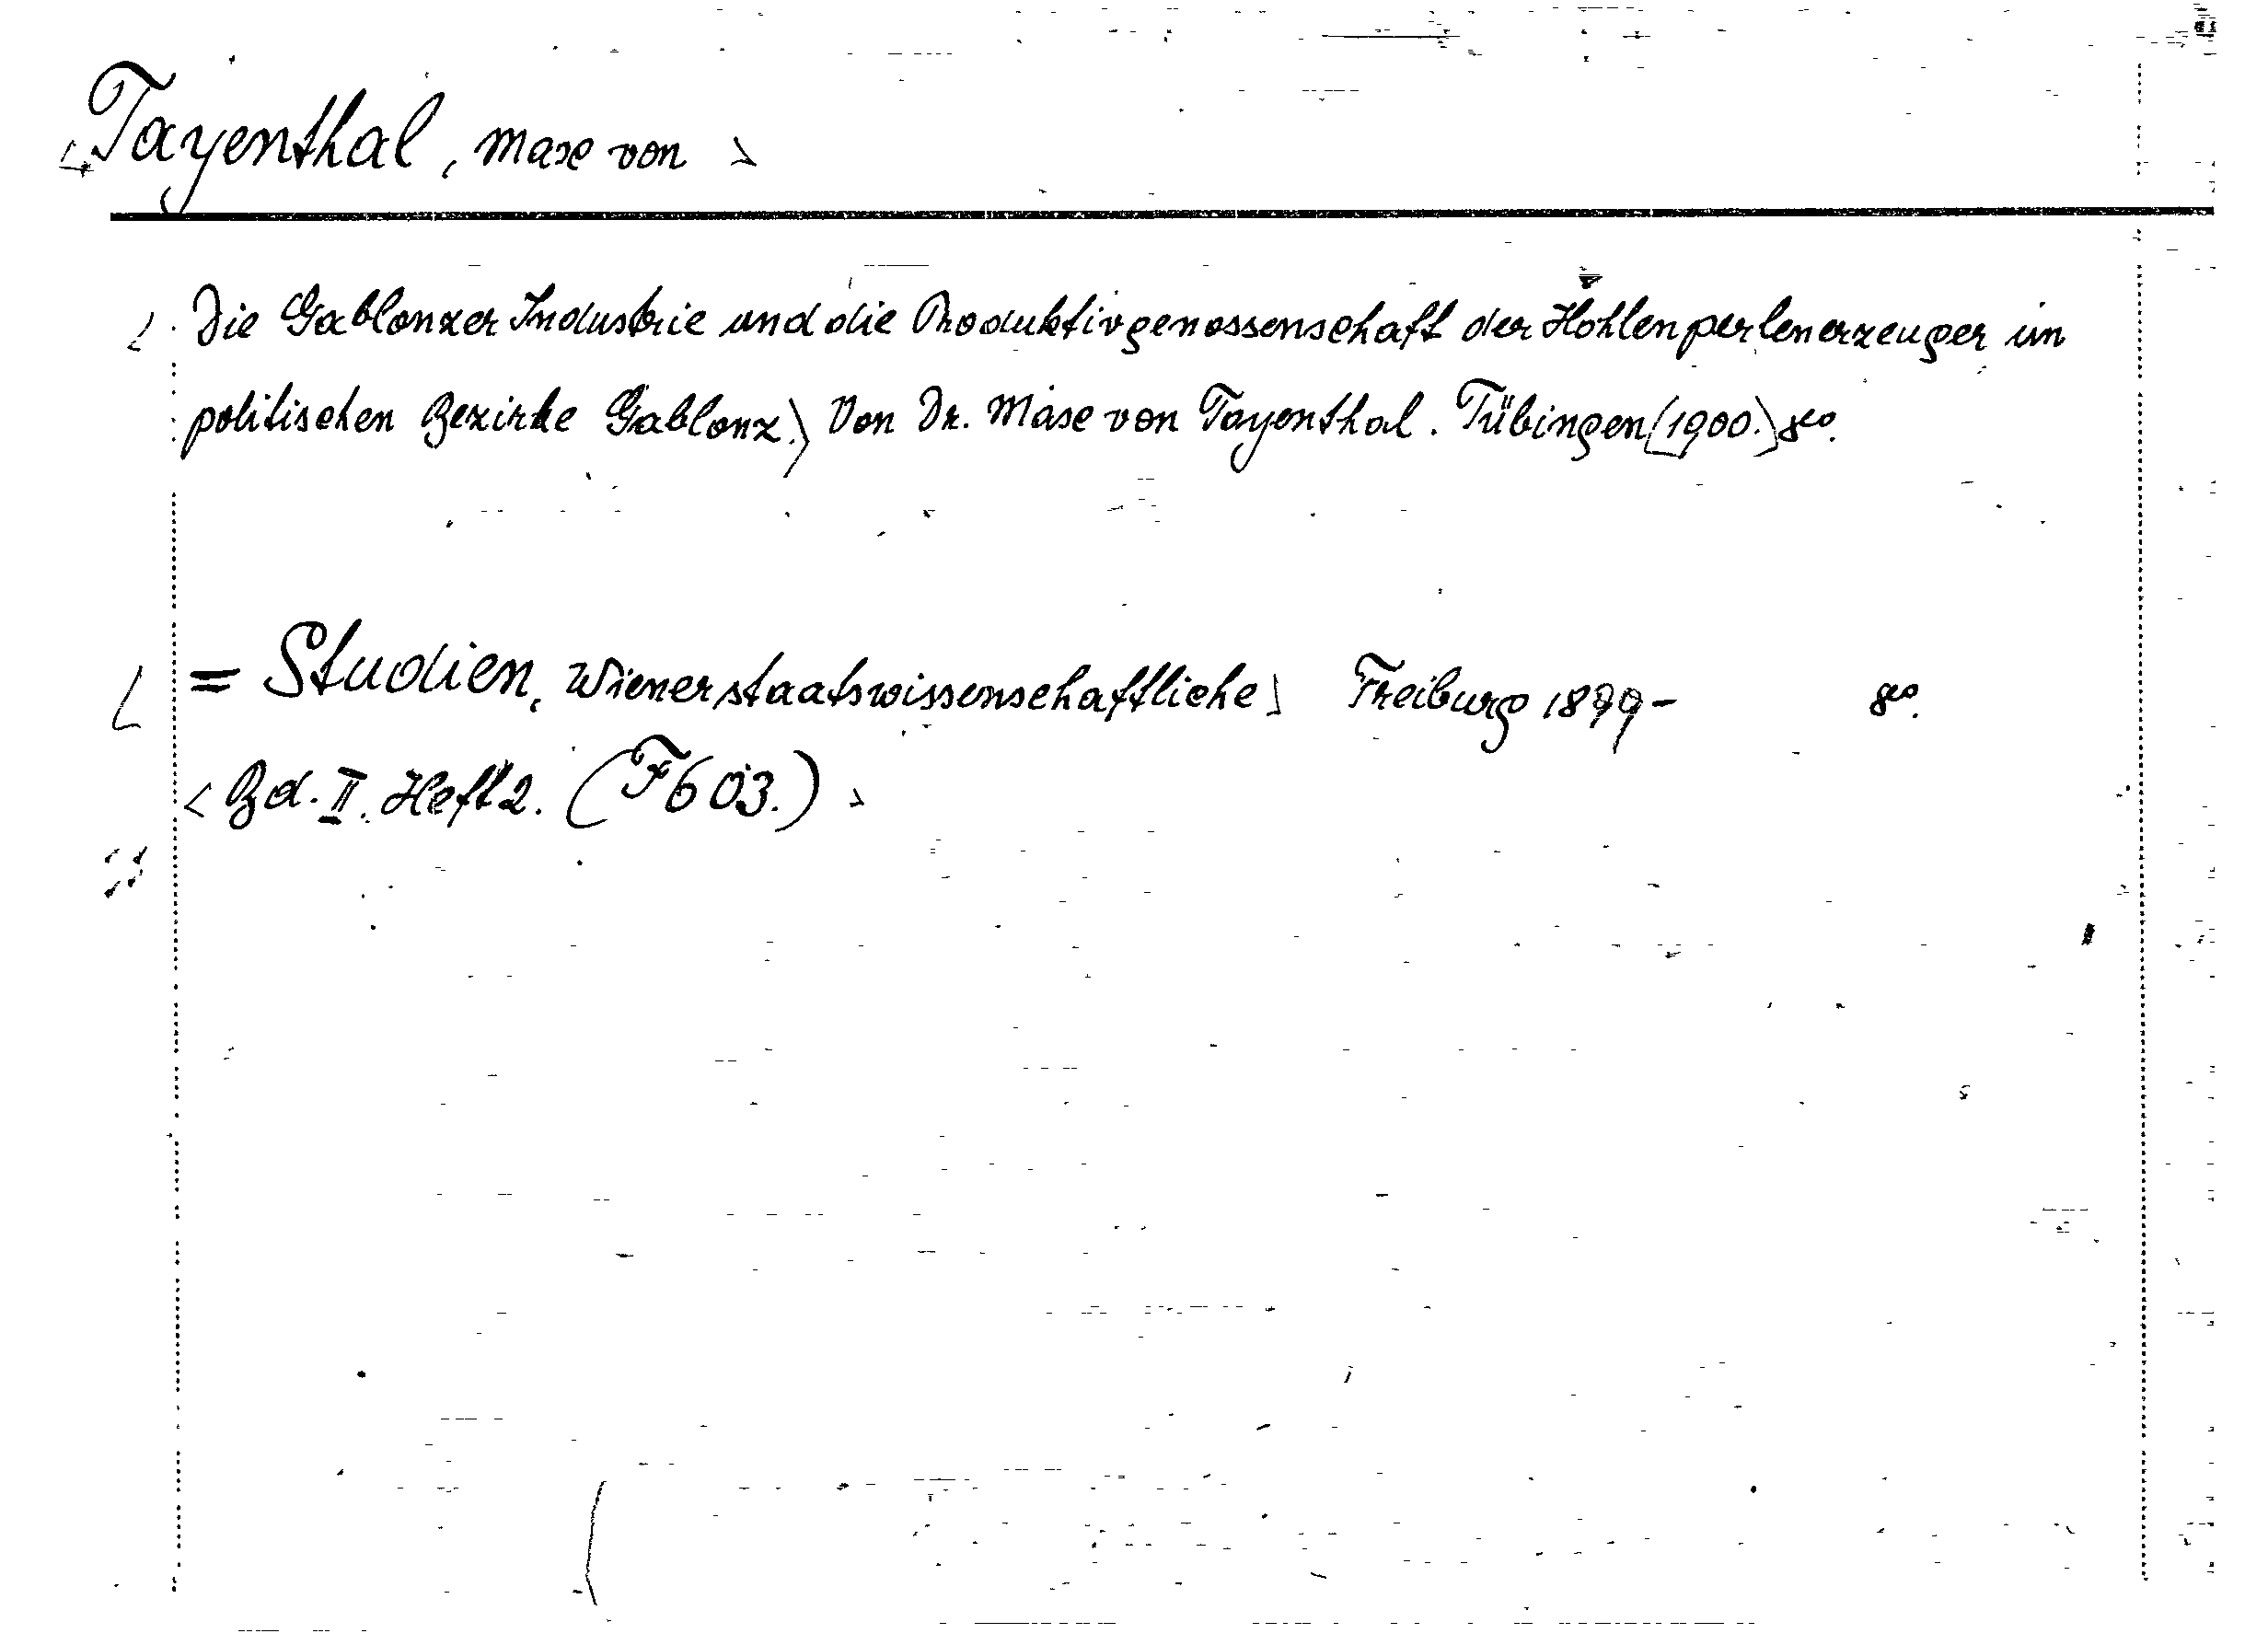 <Tayenthal, Max von>
<Die Gablonzer Industrie und die Produktivgenossenschaft der Hohlenperlenerzeuger im
politischen Bezirke Gablonz.> Von Dr. Max von Tayenthal. Tübingen [1900.] 8°.
[= Studien, Wiener staatswissenschaftliche] Freiburg 1899- 8°.
<Bd. II. Heft 2. (F 603.)>